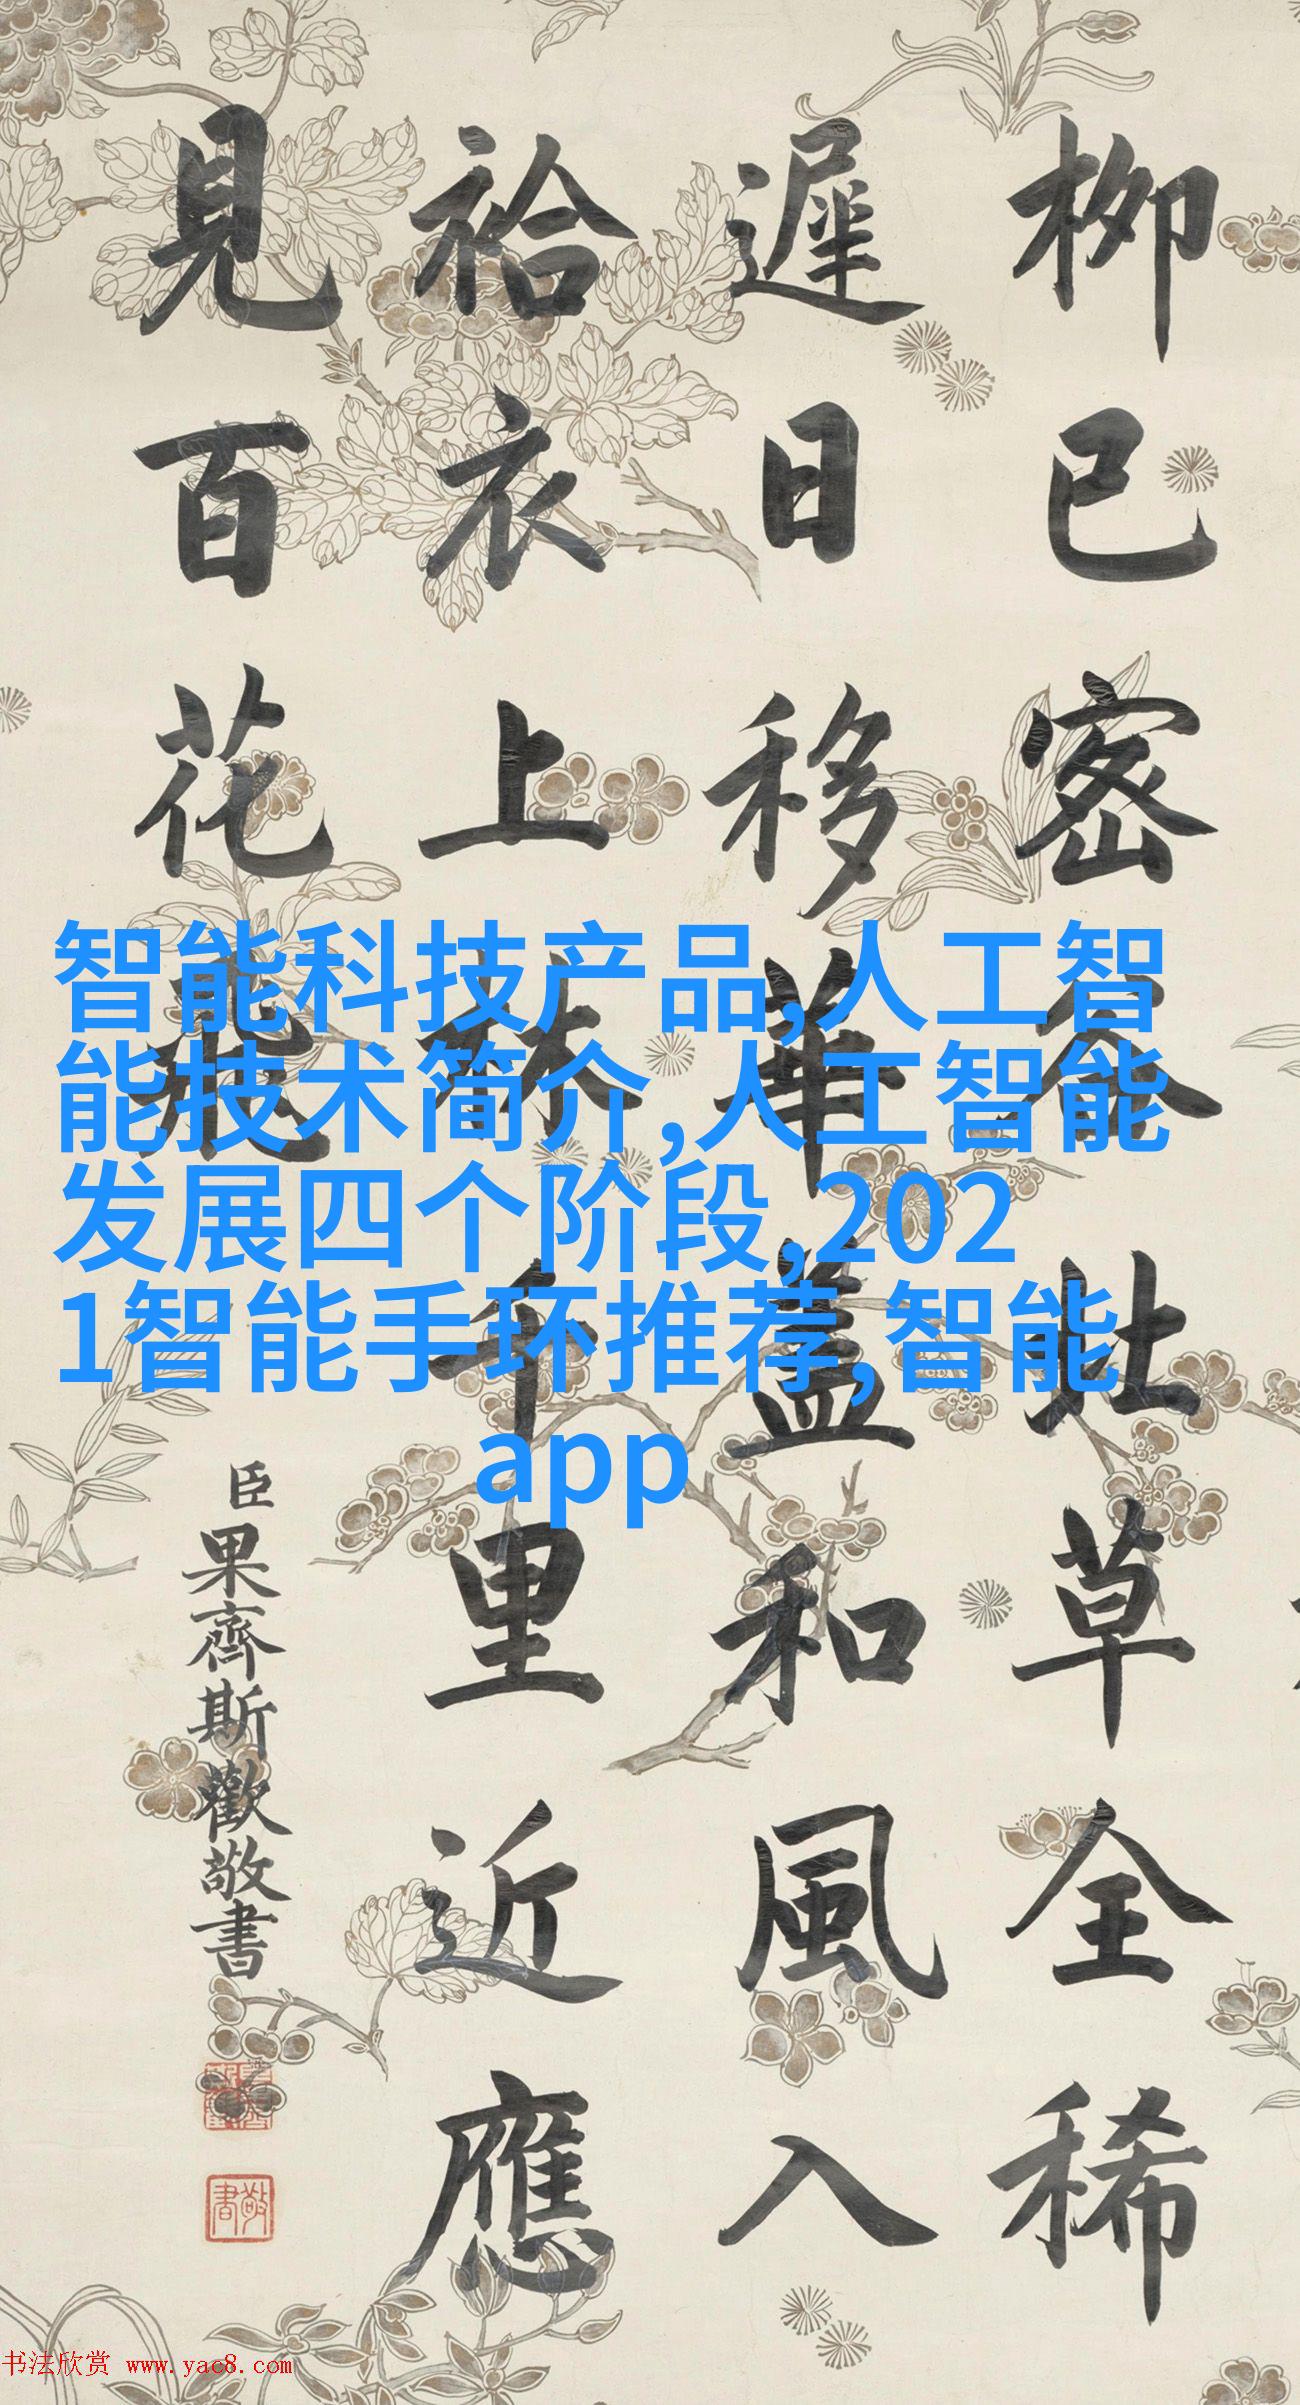 柳已密草全稀
遲日移華蓋和風入
袷衣上林千里近應
見百花飛
臣果齊斯歡敬書
敬書
智能科技产品,人工智
能技术简介,人工智能
发展四个阶段,202
1智能手环推荐,智能
app
书法欣赏 www.yac8.com